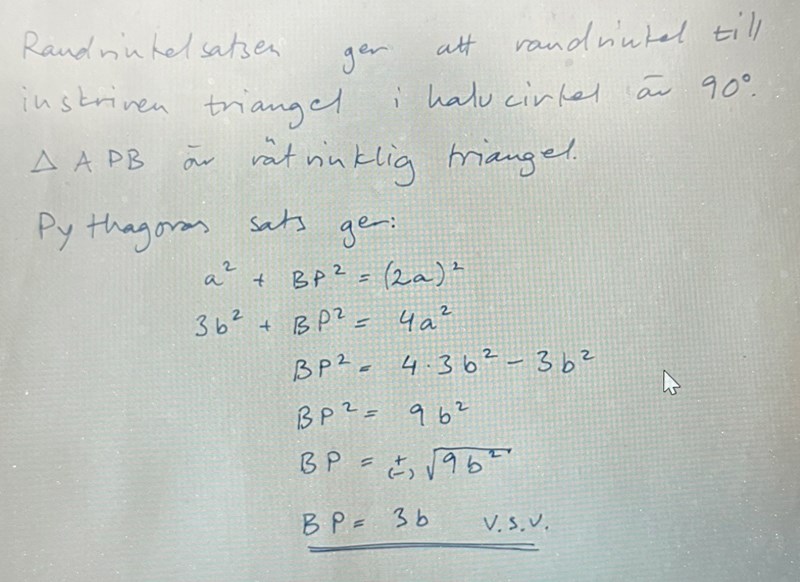 Randvinkelsatsen ger att randvinkel till
inskriven triangel i halvcirkel är 90°.
△ APB är rätvinklig triangel.
Pythagoras sats ger:
a² + BP² = (2a)²
3b² + BP² = 4a²
BP² = 4·3b² - 3b²
BP² = 9b²
BP = ±(−) √9b²
BP = 3b v.s.v.